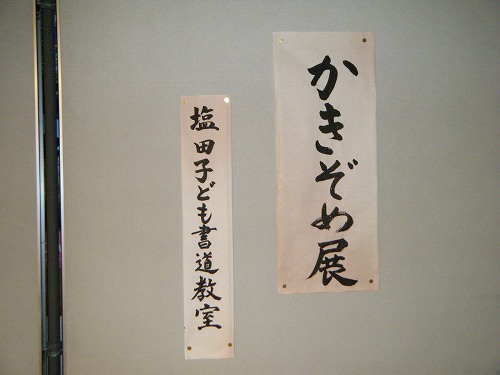 かきぞめ展
塩田子ども書道教室